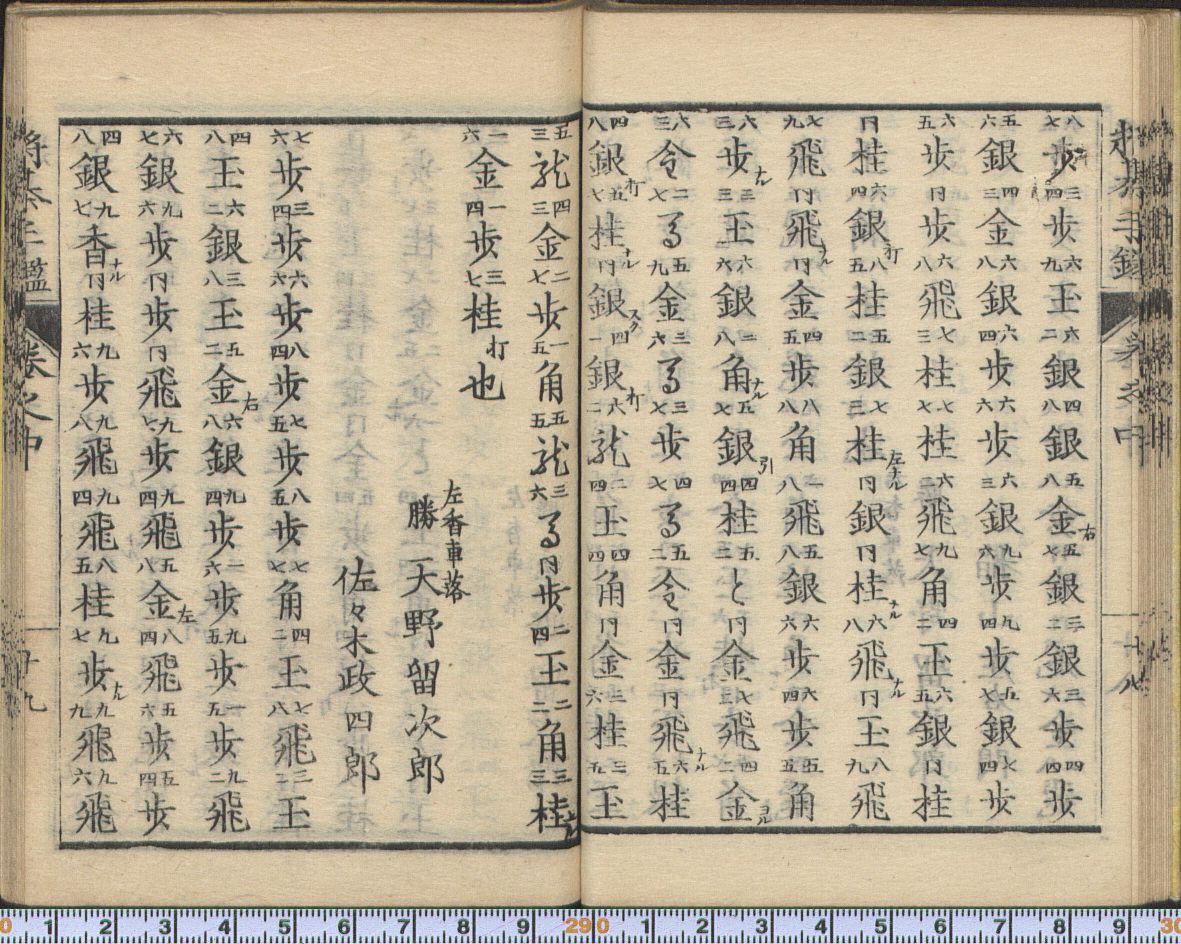 将棊手鑑 巻之中 十八
八七歩 三四歩 六九玉 六二銀 四八銀 五八金右 五七銀 三二銀 三六歩 四四歩
五六銀 四三金 六八銀 六四歩 六六歩 六三銀 九六歩 九四歩 五七銀 七四歩
六五歩 同歩 六八飛 七三桂 七七桂 六二飛 九七角 四二玉 六五銀 同桂
同桂 六四銀打 八五桂 五二銀 七三桂左ナル 同銀 同桂ナル 六八飛ナル 同玉 八九飛
七九飛 同飛ナル 同金 四五歩 八八角 一八飛 五八銀 六六歩 六四歩 五五角
六三歩ナル 三三玉 六六銀 二八角ナル 五七銀引 四四桂 五三と 同金 七三飛 四二金ヨル
六三令 二七馬 五九金 三六馬 三七歩 四七馬 五二令 同金 同飛ナル 六五桂
四八銀打 五七桂ナル 同銀スグ 四一銀打 六二龍 二四玉 四四角 同金 三六桂 三五玉
五三龍 四三金 二七歩 一五角 五五龍 三六馬 同歩 二四玉 二二角 三三桂
二六金 一四歩 三七桂打也
左香車落
勝 天野留次郎
佐々木政四郎
七六歩 三四歩 六六歩 八四歩 七五歩 八五歩 七七角 四二玉 七八飛 三二玉
四八玉 六二銀 三八玉 五二金右 六八銀 九四歩 一六歩 九五歩 一五歩 九二飛
六七銀 九六歩 同歩 同飛 九七歩 九四飛 五八金左 八四飛 五六歩 五四歩
四八銀 九七香ナル 同桂 九六歩 九八飛 九四飛 八五桂 九七歩ナル 九九飛 九六飛
将棊手鑑 巻之中 十九